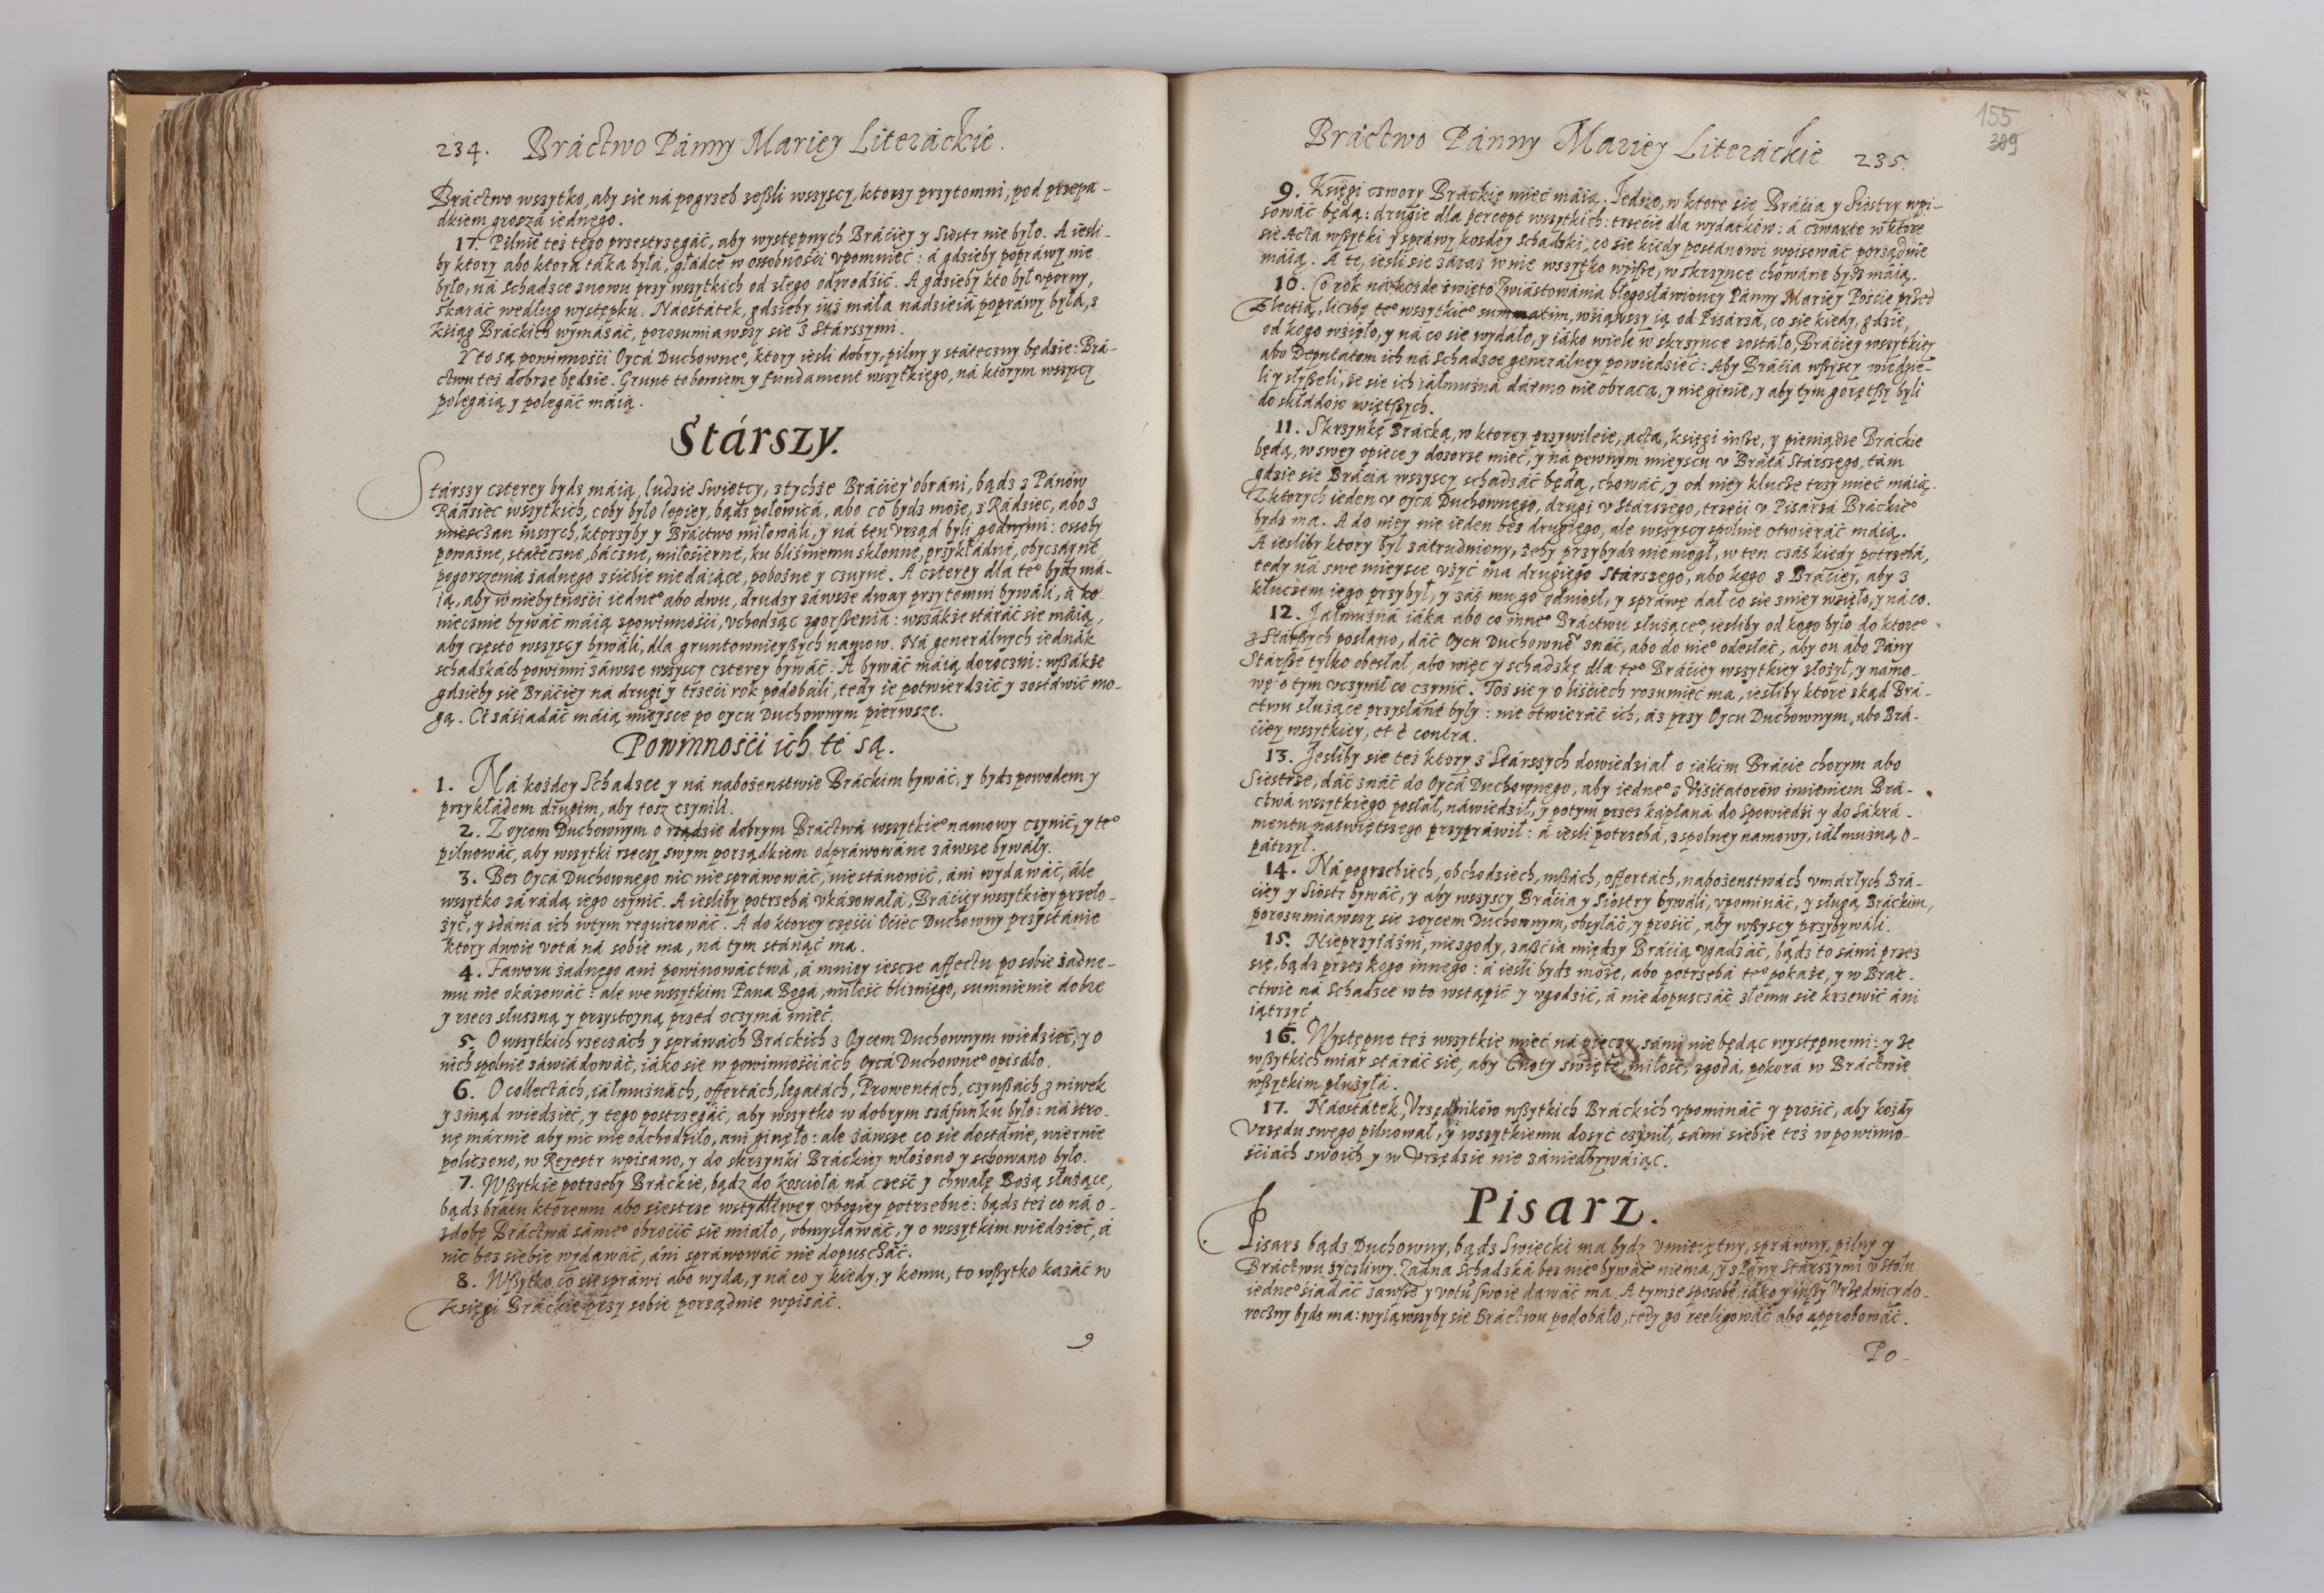 234. Bráctwo Pánny Máriey Literáckie.
Bráctwo wszytko, aby sie ná pogrzeb zeßli wszyscy, ktorzy przytomni, pod przepa-
dkiem groszá iednego.
17. Pilnie też tego przestrzegáć, aby występnych Bráciey y Siostr nie było. A iesli-
by ktory abo ktora táka była, gładce w ossobnośći vpomnieć: á gdzieby popráwy nie
było, ná Schadzce znowu przy wszytkich od złego odwodźić. A gdzieby kto był vporny,
skaráć według występku. Náostátek, gdzieby iuż máła nádzieiá popráwy byłá, z
ksiąg Bráckich wymázáć, porozumiawszy sie z Stárszymi.
Y to są powinnośći Oycá Duchowneº, ktory iesli dobry, pilny y státeczny będzie: Brá-
ctwu też dobrze będzie. Grunt to bowiem y fundament wszytkiego, ná ktorym wszyscy
polegáią y polegáć máią.
Stárszy.
Stárszy czterey bydz máią, ludzie Swietcy, z tychże Bráciey obráni, bądz z Pánów
Rádziec wszytkich, coby było lepiey, bądz połowicá, abo co bydz może, z Rádziec, abo z
miesczan inszych, ktorzyby y Bráctwo miłowáli, y ná ten Vrząd byli godnymi: ossoby
poważne, státeczne, báczne, miłosierne, ku bliśniemu skłonne, przykłádne, obyczáyne,
pogorszenia żadnego z siebie niedáiące, pobożne y czuyne. A czterey dla teº bydz má-
ią, aby w niebytnośći iedneº abo dwu, drudzy záwsze dway przytomni bywáli, á ko
niecznie bywáć máią z powinnośći, vchodząc zgorßenia: wszákże stáráć sie máią,
aby często wszyscy bywáli, dla gruntownieyßych namow. Ná generalnych iednák
schadzkách powinni záwsze wszyscy czterey bywáć. A bywáć máią doroczni: wßákże
gdzieby sie Bráciey ná drugi y trzeci rok podobáli, tedy ie potwierdzić y zostáwić mo-
gą. Ci záśiadáć máią mieysce po oycu Duchownym pierwsze.
Powinnośći ich te są.
1. Ná kożdey Schadzce y ná nabożenstwie Bráckim bywáć, y bydz powodem y
przykłádem drugim, aby tosz czynili.
2. Z oycem Duchownym o rządzie dobrym Bráctwá wszytkieº namowy czynić, y teº
pilnowáć, aby wszytki rzeczy swym porządkiem odpráwowáne záwsze bywáły.
3. Bez Oycá Duchownego nic niespráwowáć, nie stánowić, áni wydawáć, ále
wszytko zá rádą iego czynić. A iesliby potrzebá vkázowáłá, Bráciey wszytkiey przeło-
żyć, y zdánia ich w tym requirowáć. A do ktorey częśći Oćiec Duchowny przystánie
ktory dwoie votá ná sobie ma, ná tym stánąć ma.
4. Faworu żadnego ani powinowáctwá, á mniey iescze affectu po sobie żadne-
mu nie okázowáć: ale we wszytkim Pana Bogá, miłość bliźniego, sumnienie dobre
y rzecz słuszną y przystoyną przed oczymá mieć.
5. O wszytkich rzeczách y spráwách Bráckich z Oycem Duchownym wiedzieć, y o
nich spolnie záwiádowáć, iáko sie w powinnośćiách Oycá Duchowneº opisáło.
6. O collectách, iáłmużnách, offertách, legatách, Prowentách, czynßách z niwek
y zinąd wiedzieć, y tego postrzegáć, aby wszytko w dobrym száfunku było: ná stro-
nę márnie aby nic nie odchodziło, ani ginęło: ale záwsze co sie dostánie, wiernie
policzono, w Reyestr wpisano, y do skrzynki Bráckiey włożono y schowano było.
7. Wßytkie potrzeby Bráckie, bądz do kościołá ná cześć y chwałę Bożą służące,
bądz brátu ktoremu abo siestrze wstydliwey vbogiey potrzebne: bądz też co ná o-
zdobę Bráctwá sámeº obrocić sie miáło, obmyslawáć, y o wszytkim wiedzieć, á
nic bez siebie wydawáć, áni spráwowáć nie dopuszczáć.
8. Wßytko co sie spráwi abo wyda, y ná co y kiedy, y komu, to wßytko kazáć w
Księgi Bráckie przy sobie porządnie wpisáć.
9
155
309
Bráctwo Pánny Máriey Literáckie 235.
9. Księgi czwory Bráckie mieć máią. Jedno, w ktore się Bráćia y Siostry wpi-
sowáć będą: drugie dla percept wszytkich: trzećie dla wydatków: á czwarte w ktore
sie Acta wßytki y spráwy kożdey Schadzki, co sie kiedy postánowi wpisowáć porządnie
máią. A te, iesli sie záraz w nie wszytko wpiße, w skrzynce chowáne bydź máią.
10. Co rok ná kożde święto Zwiástowánia błogosłáwioney Pánny Máriey Pośćie przed
Electią, liczbę teº wszytkieº summatim, wziąwszy ią od Pisárzá, co sie kiedy, gdzie,
od kogo wzięło, y ná co sie wydáło, y iáko wiele w skrzynce zostáło, Bráciey wszytkiey
abo Deputatom ich ná Schadzce generálney powiedzieć: Aby Bráćia wßyscy wiedzie-
li y słyßeli, że sie ich iałmużná dármo nie obraca, y nie ginie, y aby tym goręßy byli
do skłádów więtßych.
11. Skrzynkę Brácką, w ktorey przywileie, acta, księgi inße, y pieniądze Bráckie
będą, w swey opiece y dozorze mieć, y ná pewnym mieyscu v Brátá Stárszego, tám
gdzie sie Bráćia wszyscy schadzáć będą, chowáć, y od niey klucze trzy mieć máią.
Z ktorych ieden v oycá Duchownego, drugi v Stárszego, trzeći v Pisárzá Bráckieº
bydz ma. A do niey nie ieden bez drugiego, ale wszyscy spolnie otwieráć máią.
A iesliby ktory był zátrudniony, żeby przybydz niemogł, w ten czás kiedy potrzebá,
tedy ná swe mieysce vżyć ma drugiego Stárszego, abo kogo z Bráciey, aby z
kluczem iego przybył, y záś mu go odniosł, y spráwę dał co sie z niey wzięło, y ná co.
12. Jáłmużná iáka abo co inneº Bráctwu służąceº, iesliby od kogo było do ktoreº
z Stárßych posłano, dáć Oycu Duchowneº znáć, abo do nieº odesłáć, aby on abo Pány
Stárße tylko obesłał, abo więc y schadzkę dla teº Bráciey wszytkiey złożył, y namo-
wę o tym vczynił co czynić. Toż sie y o liśćiech rozumieć ma, iesliby ktore skąd Brá-
ctwu służące przysłáné były: nie otwieráć ich, áż przy Oycu Duchownym, abo Brá-
ćiey wszytkiey, et è contra.
13. Jesliby sie też ktory z Stárszych dowiedział o iákim Bráćie chorym abo
Siestrze, dáć znáć do Oycá Duchownego, aby iedneº z Visitatorów imieniem Brá-
ctwá wszytkiego posłał, náwiedził, y potym przez kapłaná do Spowiedźi y do Sákrá-
mentu naświętszego przypráwił: á iesli potrzebá, z spolney namowy, iáłmużną o-
pátrzył.
14. Ná pogrzebiech, obchodziech, mßách, offertách, nabożenstwách vmárłych Brá-
ćiey y Siostr bywáć, y aby wszyscy Bráćia y Siostry bywáli, vpomináć, y sługą Bráckim,
porozumiawszy sie z oycem Duchownym, obsyłáć, y prosić, aby wßyscy przybywáli.
15. Nieprzyiáźni, niezgody, zaßćia między Bráćią vgadzáć, bądz to sámi przez
się, bądz przez kogo innego: á iesli bydz może, abo potrzebá teº pokaże, y w Brác-
ctwie ná Schadzce w to wstąpić y vgodzić, á nie dopusczáć złemu sie krzewić áni
iątrzyć.
16. Występne też wszytkie mieć ná pieczy, sámi nie będąc występnemi: y ze
wßytkich miar stáráć sie, aby Cnoty święte, miłość, zgodá, pokorá w Bráctwie
wßytkim płużyłá.
17. Náostátek, Vrzędników wßytkich Bráckich vpomináć y prosić, aby kożdy
Vrzędu swego pilnował, y wszytkiemu dosyć czynił, sámi siebie też w powinno-
śćiách swoich y w Vrzędzie nie zániedbywáiąc.
Pisarz.
Pisarz bądz Duchowny, bądz Swiecki ma bydz vmieiętny, spráwny, pilny y
Bráctwu życzliwy. Żadna Schadzká bez nieº bywáć niema, y z Pány Stárszymi v stołu
iedneº śiadáć zawße y votu swoie dawáć ma. A tymże sposobẽ, iáko y inßy Vrzędnicy do-
roczny bydz ma: wyiąwszyby sie Bráctwu podobáło, tedy go reeligowáć abo approbowáć.
Po-